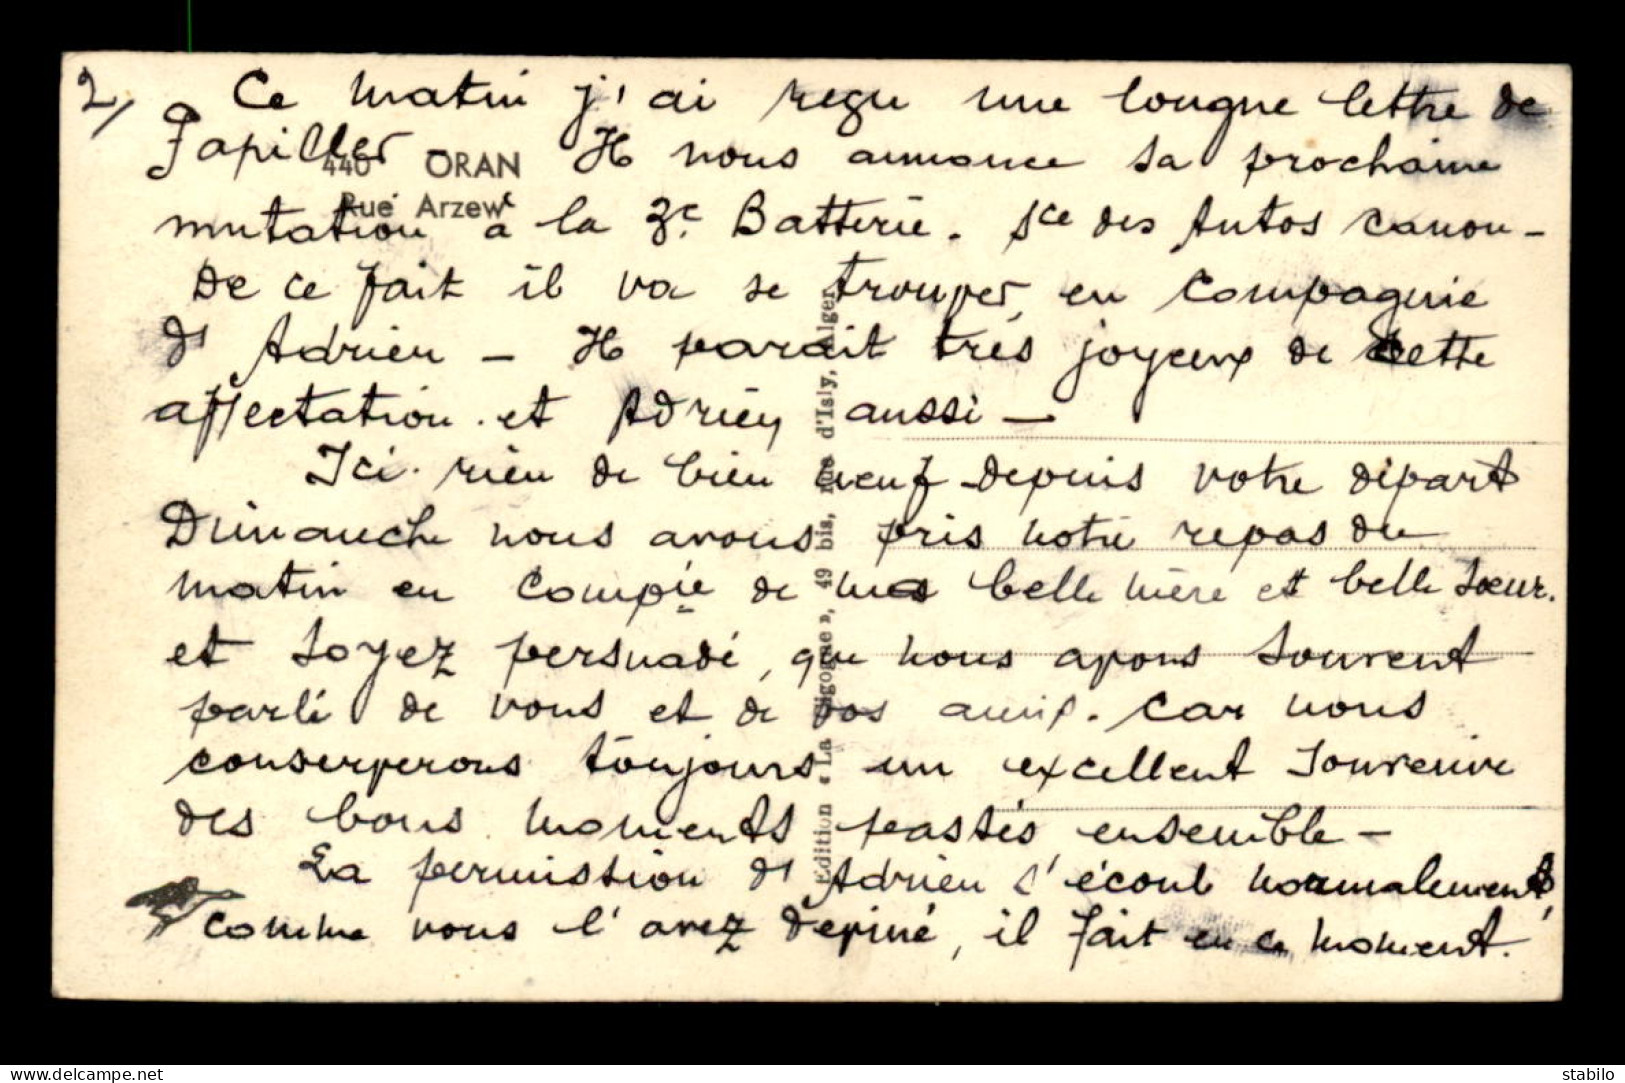 2/ Ce matin j'ai reçu une longue lettre de
Papiller Il nous annonce sa prochaine
440 ORAN
Rue Arzew
mutation à la 3e Batterie. Sce des Autos canon -
De ce fait il va se trouver en compagnie
d'Adrien - Il parait très joyeux de cette
affectation. et Adrien aussi -
Ici. rien de bien neuf depuis votre départ
Dimanche nous avons pris notre repas du
matin en Compie de ma belle mère et belle soeur.
et soyez persuadé, que nous avons souvent
parlé de vous et de vos amis. Car nous
conserverons toujours un excellent souvenir
des bons moments passés ensemble -
La permission d'Adrien s'écoule normalement,
comme vous l'avez deviné, il fait en ce moment.
Edition « La Cigogne », 49 bis, rue d'Isly, Alger
www.delcampe.net
stabilo